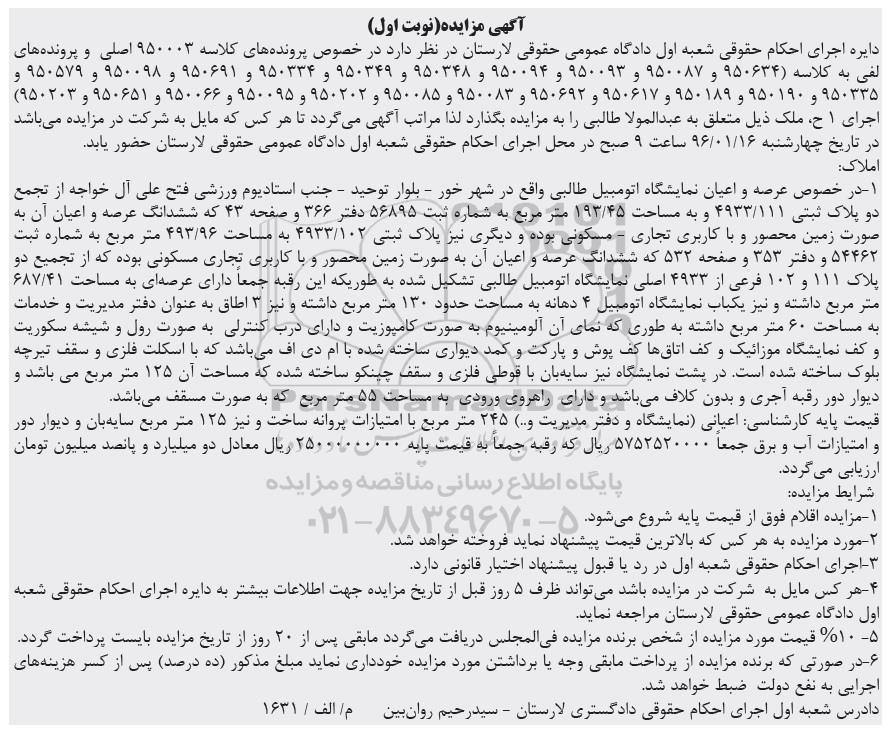 آگهی مزایده(نوبت اول)
دایره اجرای احکام حقوقی شعبه اول دادگاه عمومی حقوقی لارستان در نظر دارد در خصوص پرونده‌های کلاسه ۹۵۰۰۰۳ اصلی و پرونده‌های
لفی به کلاسه (۹۵۰۶۳۴ و ۹۵۰۰۸۷ و ۹۵۰۰۹۳ و ۹۵۰۰۹۴ و ۹۵۰۳۴۸ و ۹۵۰۳۴۹ و ۹۵۰۳۳۴ و ۹۵۰۶۹۱ و ۹۵۰۰۹۸ و ۹۵۰۵۷۹ و
۹۵۰۳۳۵ و ۹۵۰۱۹۰ و ۹۵۰۱۸۹ و ۹۵۰۶۱۷ و ۹۵۰۶۹۲ و ۹۵۰۰۸۳ و ۹۵۰۰۸۵ و ۹۵۰۲۰۲ و ۹۵۰۰۹۵ و ۹۵۰۰۶۶ و ۹۵۰۶۵۱ و ۹۵۰۲۰۳)
اجرای ۱ ح، ملک ذیل متعلق به عبدالمولا طالبی را به مزایده بگذارد لذا مراتب آگهی می‌گردد تا هر کس که مایل به شرکت در مزایده می‌باشد
در تاریخ چهارشنبه ۹۶/۰۱/۱۶ ساعت ۹ صبح در محل اجرای احکام حقوقی شعبه اول دادگاه عمومی حقوقی لارستان حضور یابد.
املاک:
۱-در خصوص عرصه و اعیان نمایشگاه اتومبیل طالبی واقع در شهر خور - بلوار توحید - جنب استادیوم ورزشی فتح علی آل خواجه از تجمع
دو پلاک ثبتی ۴۹۳۳/۱۱۱ و به مساحت ۱۹۳/۴۵ متر مربع به شماره ثبت ۵۶۸۹۵ دفتر ۳۶۶ و صفحه ۴۳ که ششدانگ عرصه و اعیان آن به
صورت زمین محصور و با کاربری تجاری - مسکونی بوده و دیگری نیز پلاک ثبتی ۴۹۳۳/۱۰۲ به مساحت ۴۹۳/۹۶ متر مربع به شماره ثبت
۵۴۴۶۲ و دفتر ۳۵۳ و صفحه ۵۳۲ که ششدانگ عرصه و اعیان آن به صورت زمین محصور و با کاربری تجاری مسکونی بوده که از تجمیع دو
پلاک ۱۱۱ و ۱۰۲ فرعی از ۴۹۳۳ اصلی نمایشگاه اتومبیل طالبی تشکیل شده به طوریکه این رقبه جمعاً دارای عرصه‌ای به مساحت ۶۸۷/۴۱
متر مربع داشته و نیز یکباب نمایشگاه اتومبیل ۴ دهانه به مساحت حدود ۱۳۰ متر مربع داشته و نیز ۳ اطاق به عنوان دفتر مدیریت و خدمات
به مساحت ۶۰ متر مربع داشته به طوری که نمای آن آلومینیوم به صورت کامپوزیت و دارای درب کنترلی به صورت رول و شیشه سکوریت
و کف نمایشگاه موزائیک و کف اتاق‌ها کف پوش و پارکت و کمد دیواری ساخته شده با ام دی اف می‌باشد که با اسکلت فلزی و سقف تیرچه
بلوک ساخته شده است. در پشت نمایشگاه نیز سایه‌بان با قوطی فلزی و سقف چینکو ساخته شده که مساحت آن ۱۲۵ متر مربع می باشد و
دیوار دور رقبه آجری و بدون کلاف می‌باشد و دارای راهروی ورودی به مساحت ۵۵ متر مربع که به صورت مسقف می‌باشد.
قیمت پایه کارشناسی: اعیانی (نمایشگاه و دفتر مدیریت و..) ۲۴۵ متر مربع با امتیازات پروانه ساخت و نیز ۱۲۵ متر مربع سایه‌بان و دیوار دور
و امتیازات آب و برق جمعاً ۵۷۵۲۵۲۰۰۰۰ ریال که رقبه جمعاً به قیمت پایه ۲۵۰۰۰۰۰۰۰۰۰ ریال معادل دو میلیارد و پانصد میلیون تومان
ارزیابی می‌گردد.
شرایط مزایده:
۱-مزایده اقلام فوق از قیمت پایه شروع می‌شود.
۲-مورد مزایده به هر کس که بالاترین قیمت پیشنهاد نماید فروخته خواهد شد.
۳-اجرای احکام حقوقی شعبه اول در رد یا قبول پیشنهاد اختیار قانونی دارد.
۴-هر کس مایل به شرکت در مزایده باشد می‌تواند ظرف ۵ روز قبل از تاریخ مزایده جهت اطلاعات بیشتر به دایره اجرای احکام حقوقی شعبه
اول دادگاه عمومی حقوقی لارستان مراجعه نماید.
۵- ۱۰% قیمت مورد مزایده از شخص برنده مزایده فی‌المجلس دریافت می‌گردد مابقی پس از ۲۰ روز از تاریخ مزایده بایست پرداخت گردد.
۶-در صورتی که برنده مزایده از پرداخت مابقی وجه یا برداشتن مورد مزایده خودداری نماید مبلغ مذکور (ده درصد) پس از کسر هزینه‌های
اجرایی به نفع دولت ضبط خواهد شد.
دادرس شعبه اول اجرای احکام حقوقی دادگستری لارستان - سیدرحیم روان‌بین م/ الف / ۱۶۳۱
ParsNamadData
پایگاه اطلاع رسانی مناقصه و مزایده
۰۲۱-۸۸۳۴۹۶۷۰-۵